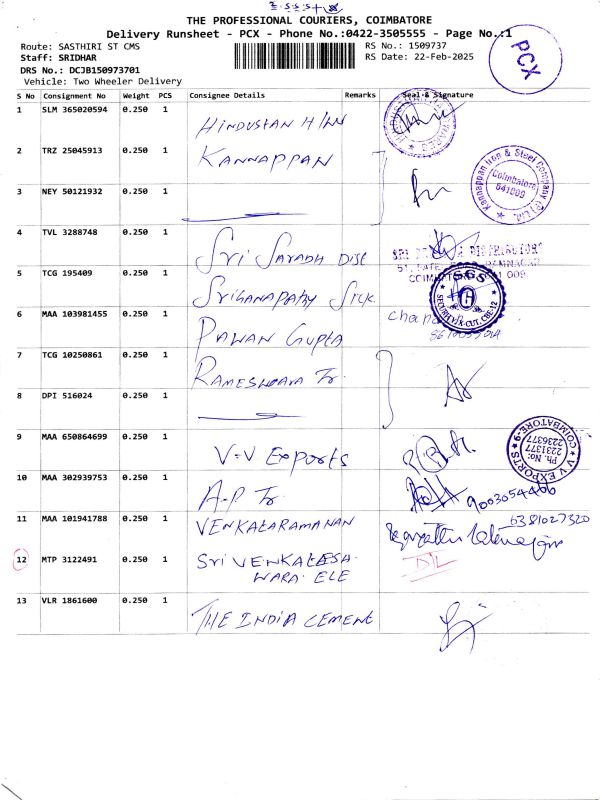 THE PROFESSIONAL COURIERS, COIMBATORE
Delivery Runsheet - PCX - Phone No.:0422-3505555 - Page No.:1
Route: SASTHIRI ST CMS
RS No.: 1509737
Staff: SRIDHAR
RS Date: 22-Feb-2025
DRS No.: DCJB150973701
Vehicle: Two Wheeler Delivery
PCX
S No Consignment No Weight PCS Consignee Details Remarks Seal & Signature
1 SLM 365020594 0.250 1 HINDUSTAN
2 TRZ 25045913 0.250 1 KANNAPPAN
Kannappan Iron & Steel Company (P) Ltd.
Coimbatore
641009
3 NEY 50121932 0.250 1
4 TVL 3288748 0.250 1 Sri SARADA DISt
SRI DISTRIBUTOR
5 TCG 195409 0.250 1
SGS
6 MAA 103981455 0.250 1 PAWAN GUPTA
7 TCG 10250861 0.250 1 RAMESHWARA Tr.
8 DPI 516024 0.250 1
9 MAA 650864699 0.250 1 V-V Exports
V V EXPORTS COIMBATORE-9
Ph. No:
2231377
2236377
10 MAA 302939753 0.250 1 A-P Tr
9003054466
11 MAA 101941788 0.250 1 VENKATARAMANAN
6381027320
12 MTP 3122491 0.250 1 Sri VENKATESA-
WARA ELE
DL
13 VLR 1861600 0.250 1 THE INDIA CEMENT